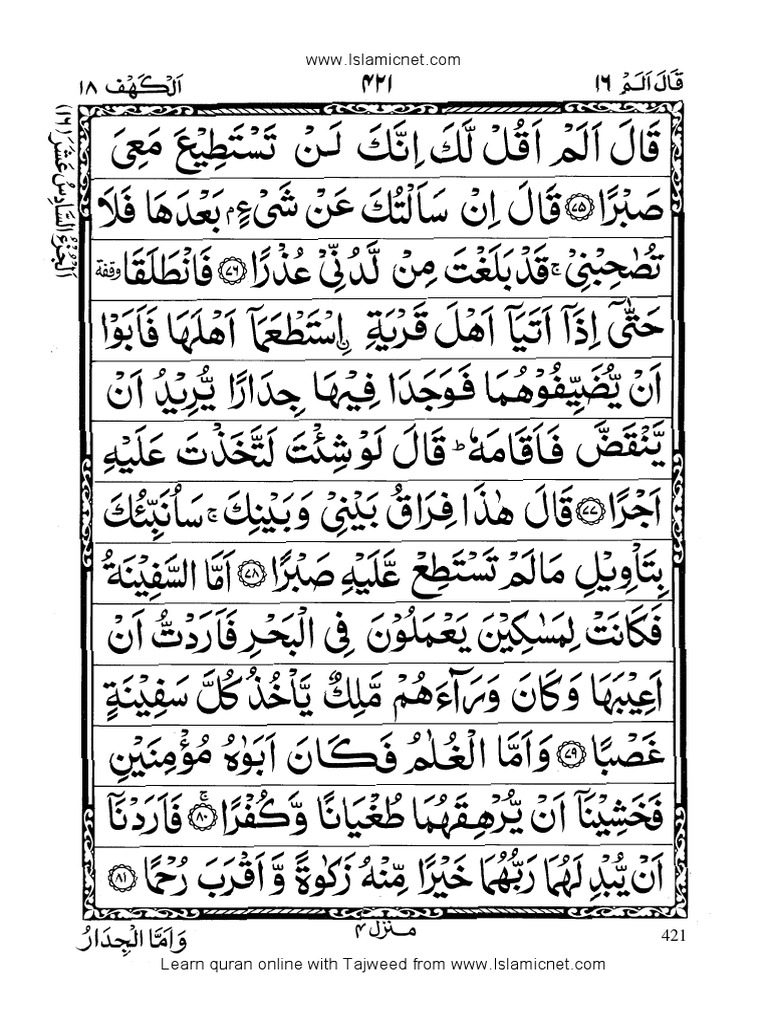 www.Islamicnet.com
قَالَ اَلَمْ ١٦ ۴٢١ اَلْكَهْف ١٨
اَلْجُزْءُ السَّادِسُ عَشَرَ (١٦)
قَالَ اَلَمْ اَقُلْ لَّكَ اِنَّكَ لَنْ تَسْتَطِيْعَ مَعِىَ
صَبْرًا ﴿۷۵﴾ قَالَ اِنْ سَاَلْتُكَ عَنْ شَىْءٍۭ بَعْدَهَا فَلَا
تُصٰحِبْنِىْ ۚ قَدْ بَلَغْتَ مِنْ لَّدُنِّىْ عُذْرًا ﴿۷۶﴾ فَانْطَلَقَا وقفة
حَتّٰٓى اِذَآ اَتَيَآ اَهْلَ قَرْيَةِ ۨاسْتَطْعَمَآ اَهْلَهَا فَاَبَوْا
اَنْ يُّضَيِّفُوْهُمَا فَوَجَدَا فِيْهَا جِدَارًا يُّرِيْدُ اَنْ
يَّنْقَضَّ فَاَقَامَهٗ ؕ قَالَ لَوْ شِئْتَ لَتَّخَذْتَ عَلَيْهِ
اَجْرًا ﴿۷۷﴾ قَالَ هٰذَا فِرَاقُ بَيْنِىْ وَبَيْنِكَ ۚ سَاُنَبِّئُكَ
بِتَاْوِيْلِ مَا لَمْ تَسْتَطِعْ عَّلَيْهِ صَبْرًا ﴿۷۸﴾ اَمَّا السَّفِيْنَةُ
فَكَانَتْ لِمَسٰكِيْنَ يَعْمَلُوْنَ فِى الْبَحْرِ فَاَرَدْتُّ اَنْ
اَعِيْبَهَا وَكَانَ وَرَآءَهُمْ مَّلِكٌ يَّاْخُذُ كُلَّ سَفِيْنَةٍ
غَصْبًا ﴿۷۹﴾ وَاَمَّا الْغُلٰمُ فَكَانَ اَبَوٰهُ مُؤْمِنَيْنِ
فَخَشِيْنَآ اَنْ يُّرْهِقَهُمَا طُغْيَانًا وَّكُفْرًا ۚ ﴿۸۰﴾ فَاَرَدْنَآ
اَنْ يُّبْدِلَهُمَا رَبُّهُمَا خَيْرًا مِّنْهُ زَكٰوةً وَّاَقْرَبَ رُحْمًا ﴿۸۱﴾
منزل ۴
وَاَمَّا الْجِدَارُ
421
Learn quran online with Tajweed from www.Islamicnet.com